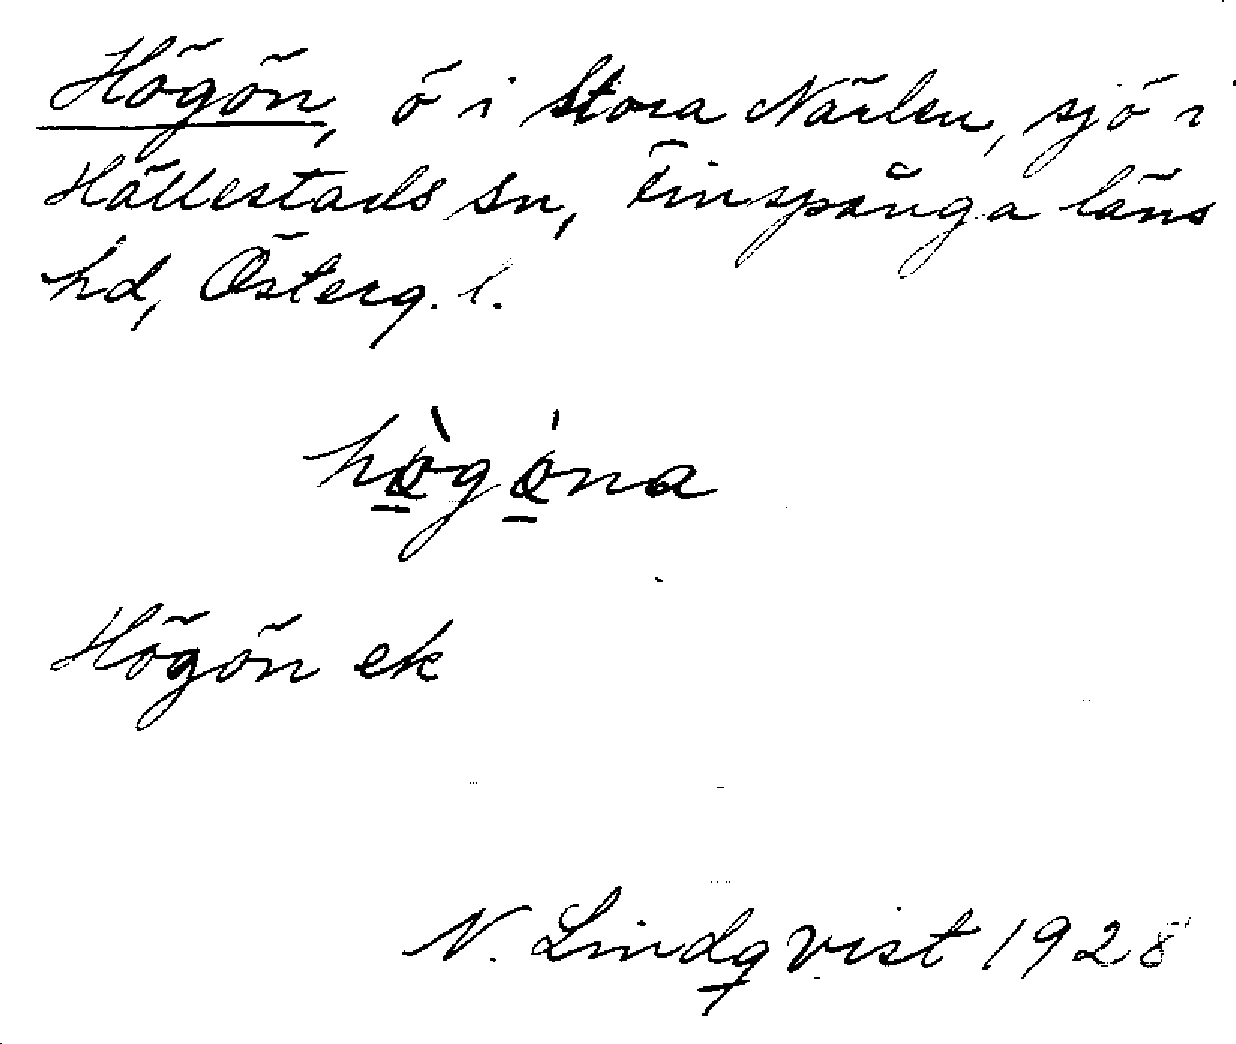 Högön, ö i Stora Närlen, sjö i
Hällestads sn, Finspånga läns
hd, Österg. l.
hǫ̀gǫ́na
Högön ek
N. Lindqvist 1928